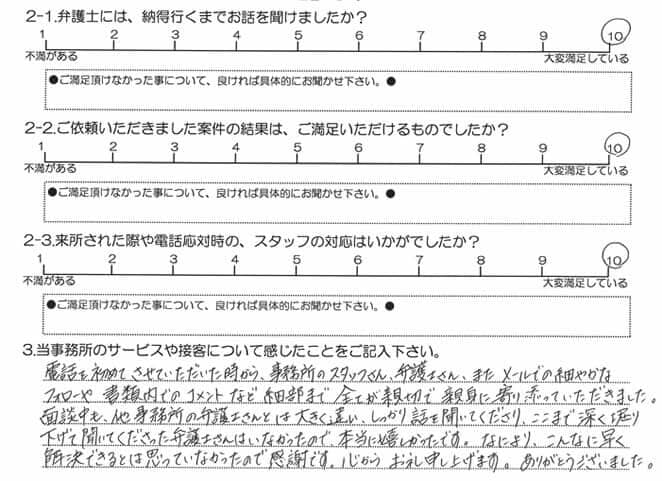 2-1.弁護士には、納得行くまでお話を聞けましたか？
1 2 3 4 5 6 7 8 9 10
不満がある 大変満足している
●ご満足頂けなかった事について、良ければ具体的にお聞かせ下さい。●
2-2.ご依頼いただきました案件の結果は、ご満足いただけるものでしたか？
1 2 3 4 5 6 7 8 9 10
不満がある 大変満足している
●ご満足頂けなかった事について、良ければ具体的にお聞かせ下さい。●
2-3.来所された際や電話応対時の、スタッフの対応はいかがでしたか？
1 2 3 4 5 6 7 8 9 10
不満がある 大変満足している
●ご満足頂けなかった事について、良ければ具体的にお聞かせ下さい。●
3.当事務所のサービスや接客について感じたことをご記入下さい。
電話を初めてさせていただいた時から、事務所のスタッフさん、弁護士さん、また メールでの細やかな
フォローや 書類内でのコメントなど 細部まで 全てが親切で 親身に寄り添っていただきました。
面談中も、他事務所の弁護士さんとは 大きく違い、しっかり話を聞いてくださり、ここまで深く掘り
下げて聞いてくださった弁護士さんはいなかったので、本当に嬉しかったです。なにより、こんなに早く
解決できるとは思っていなかったので感謝です。心から お礼申し上げます。ありがとうございました。